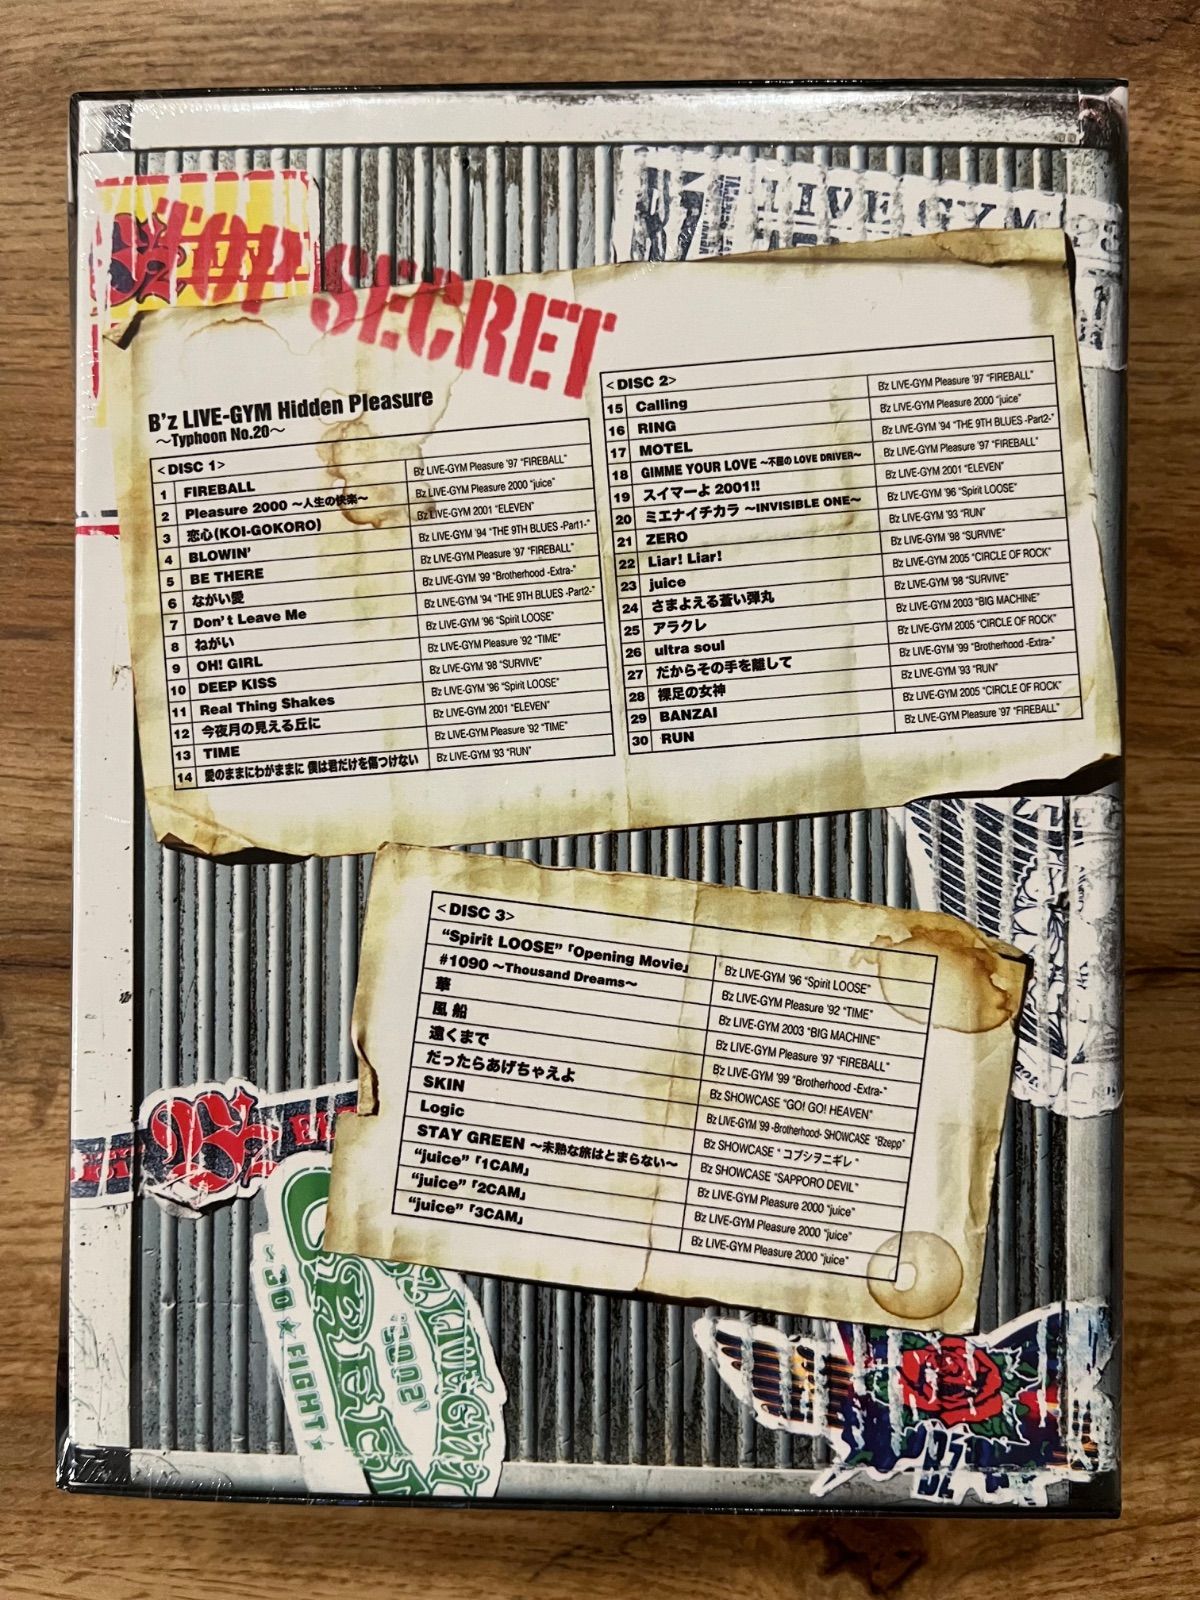 TOP SECRET
LIVE GYM
B'z LIVE-GYM Hidden Pleasure
～Typhoon No.20～
<DISC 1>
1 FIREBALL B'z LIVE-GYM Pleasure '97 "FIREBALL"
2 Pleasure 2000 ～人生の快楽～ B'z LIVE-GYM Pleasure 2000 "juice"
3 恋心(KOI-GOKORO) B'z LIVE-GYM 2001 "ELEVEN"
4 BLOWIN' B'z LIVE-GYM '94 "THE 9TH BLUES -Part1-"
5 BE THERE B'z LIVE-GYM Pleasure '97 "FIREBALL"
6 ながい愛 B'z LIVE-GYM '99 "Brotherhood -Extra-"
7 Don't Leave Me B'z LIVE-GYM '94 "THE 9TH BLUES -Part2-"
8 ねがい B'z LIVE-GYM '96 "Spirit LOOSE"
9 OH! GIRL B'z LIVE-GYM Pleasure '92 "TIME"
10 DEEP KISS B'z LIVE-GYM '98 "SURVIVE"
11 Real Thing Shakes B'z LIVE-GYM '96 "Spirit LOOSE"
12 今夜月の見える丘に B'z LIVE-GYM 2001 "ELEVEN"
13 TIME B'z LIVE-GYM Pleasure '92 "TIME"
14 愛のままにわがままに 僕は君だけを傷つけない B'z LIVE-GYM '93 "RUN"
<DISC 2>
15 Calling B'z LIVE-GYM Pleasure '97 "FIREBALL"
16 RING B'z LIVE-GYM Pleasure 2000 "juice"
17 MOTEL B'z LIVE-GYM '94 "THE 9TH BLUES -Part2-"
18 GIMME YOUR LOVE ～不屈の LOVE DRIVER～ B'z LIVE-GYM Pleasure '97 "FIREBALL"
19 スイマーよ 2001!! B'z LIVE-GYM 2001 "ELEVEN"
20 ミエナイチカラ ～INVISIBLE ONE～ B'z LIVE-GYM '96 "Spirit LOOSE"
21 ZERO B'z LIVE-GYM '93 "RUN"
22 Liar! Liar! B'z LIVE-GYM '98 "SURVIVE"
23 juice B'z LIVE-GYM 2005 "CIRCLE OF ROCK"
24 さまよえる蒼い弾丸 B'z LIVE-GYM '98 "SURVIVE"
25 アラクレ B'z LIVE-GYM 2003 "BIG MACHINE"
26 ultra soul B'z LIVE-GYM 2005 "CIRCLE OF ROCK"
27 だからその手を離して B'z LIVE-GYM '99 "Brotherhood -Extra-"
28 裸足の女神 B'z LIVE-GYM '93 "RUN"
29 BANZAI B'z LIVE-GYM 2005 "CIRCLE OF ROCK"
30 RUN B'z LIVE-GYM Pleasure '97 "FIREBALL"
<DISC 3>
"Spirit LOOSE"「Opening Movie」 B'z LIVE-GYM '96 "Spirit LOOSE"
#1090 ～Thousand Dreams～ B'z LIVE-GYM Pleasure '92 "TIME"
華 B'z LIVE-GYM 2003 "BIG MACHINE"
風船 B'z LIVE-GYM Pleasure '97 "FIREBALL"
遠くまで B'z LIVE-GYM '99 "Brotherhood -Extra-"
だったらあげちゃえよ B'z SHOWCASE "GO! GO! HEAVEN"
SKIN B'z LIVE-GYM '99 -Brotherhood- SHOWCASE "Bzepp"
Logic B'z SHOWCASE "コブシヲニギレ"
STAY GREEN ～未熟な旅はとまらない～ B'z SHOWCASE "SAPPORO DEVIL"
"juice"「1CAM」 B'z LIVE-GYM Pleasure 2000 "juice"
"juice"「2CAM」 B'z LIVE-GYM Pleasure 2000 "juice"
"juice"「3CAM」 B'z LIVE-GYM Pleasure 2000 "juice"
B'z
GREEN
LIVE-GYM
2002
~30★FIGHT★
B'z